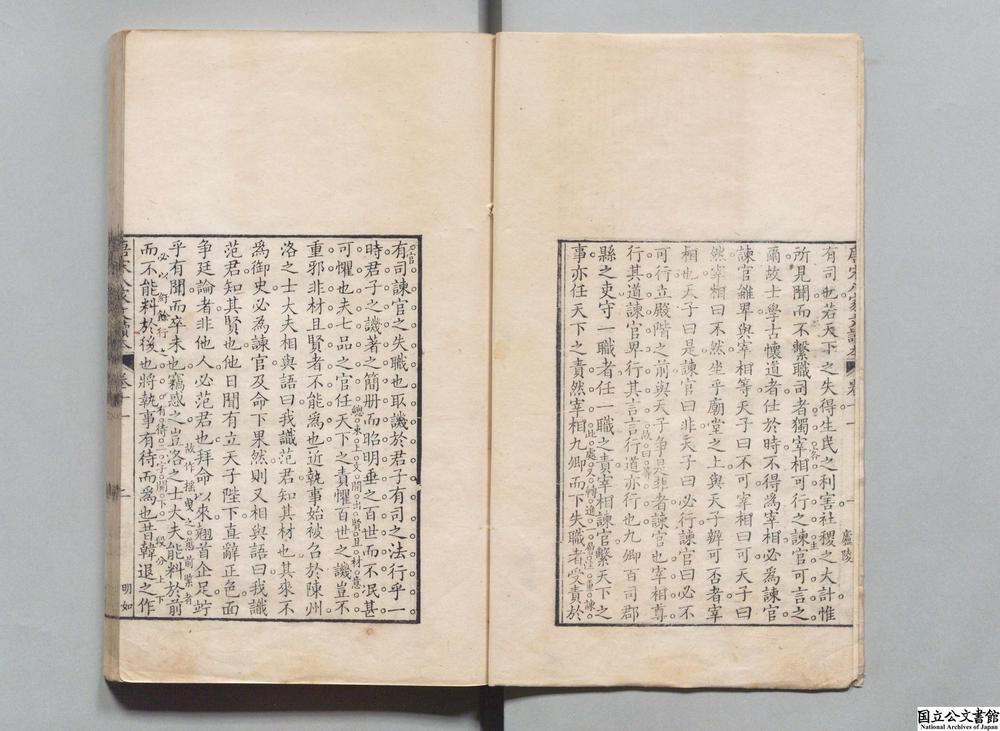 廬陵
有司也若天下之失得生民之利害社稷之大計惟
所見聞而不繫職司者獨宰相可行之諫官可言之
爾故士學古懷道者仕於時不得爲宰相必爲諫官
諫官雖卑與宰相等天子曰不可宰相曰可天子曰
然宰相曰不然坐乎廟堂之上與天子辨可否者宰
相也天子曰是諫官曰非天子曰必行諫官曰必不
可行立殿階之前與天子爭是非者諫官也宰相尊
行其道諫官卑行其言言行道亦行也九卿百司郡
縣之吏守一職者任一職之責宰相諫官繫天下之
事亦任天下之責然宰相九卿而下失職者受責於
有司諫官之失職也取譏於君子有司之法行乎一
時君子之譏著之簡册而昭明垂之百世而不泯甚
可懼也夫七品之官任天下之責懼百世之譏豈不
總束上文開出賢且材意
重邪非材且賢者不能爲也近執事始被召於陳州
洛之士大夫相與語曰我識范君知其材也其來不
爲御史必爲諫官及命下果然則又相與語曰我識
范君知其賢也他日聞有立天子陛下直辭正色面
爭廷論者非他人必范君也拜命以來翹首企足竚
故作搖曳之態前緊者
乎有聞而卒未也竊惑之豈洛之士大夫能料於前
有待二字開下一段分上下
而不能料於後也將執事有待而爲也昔韓退之作
卷十一
明如
国立公文書館
National Archives of Japan